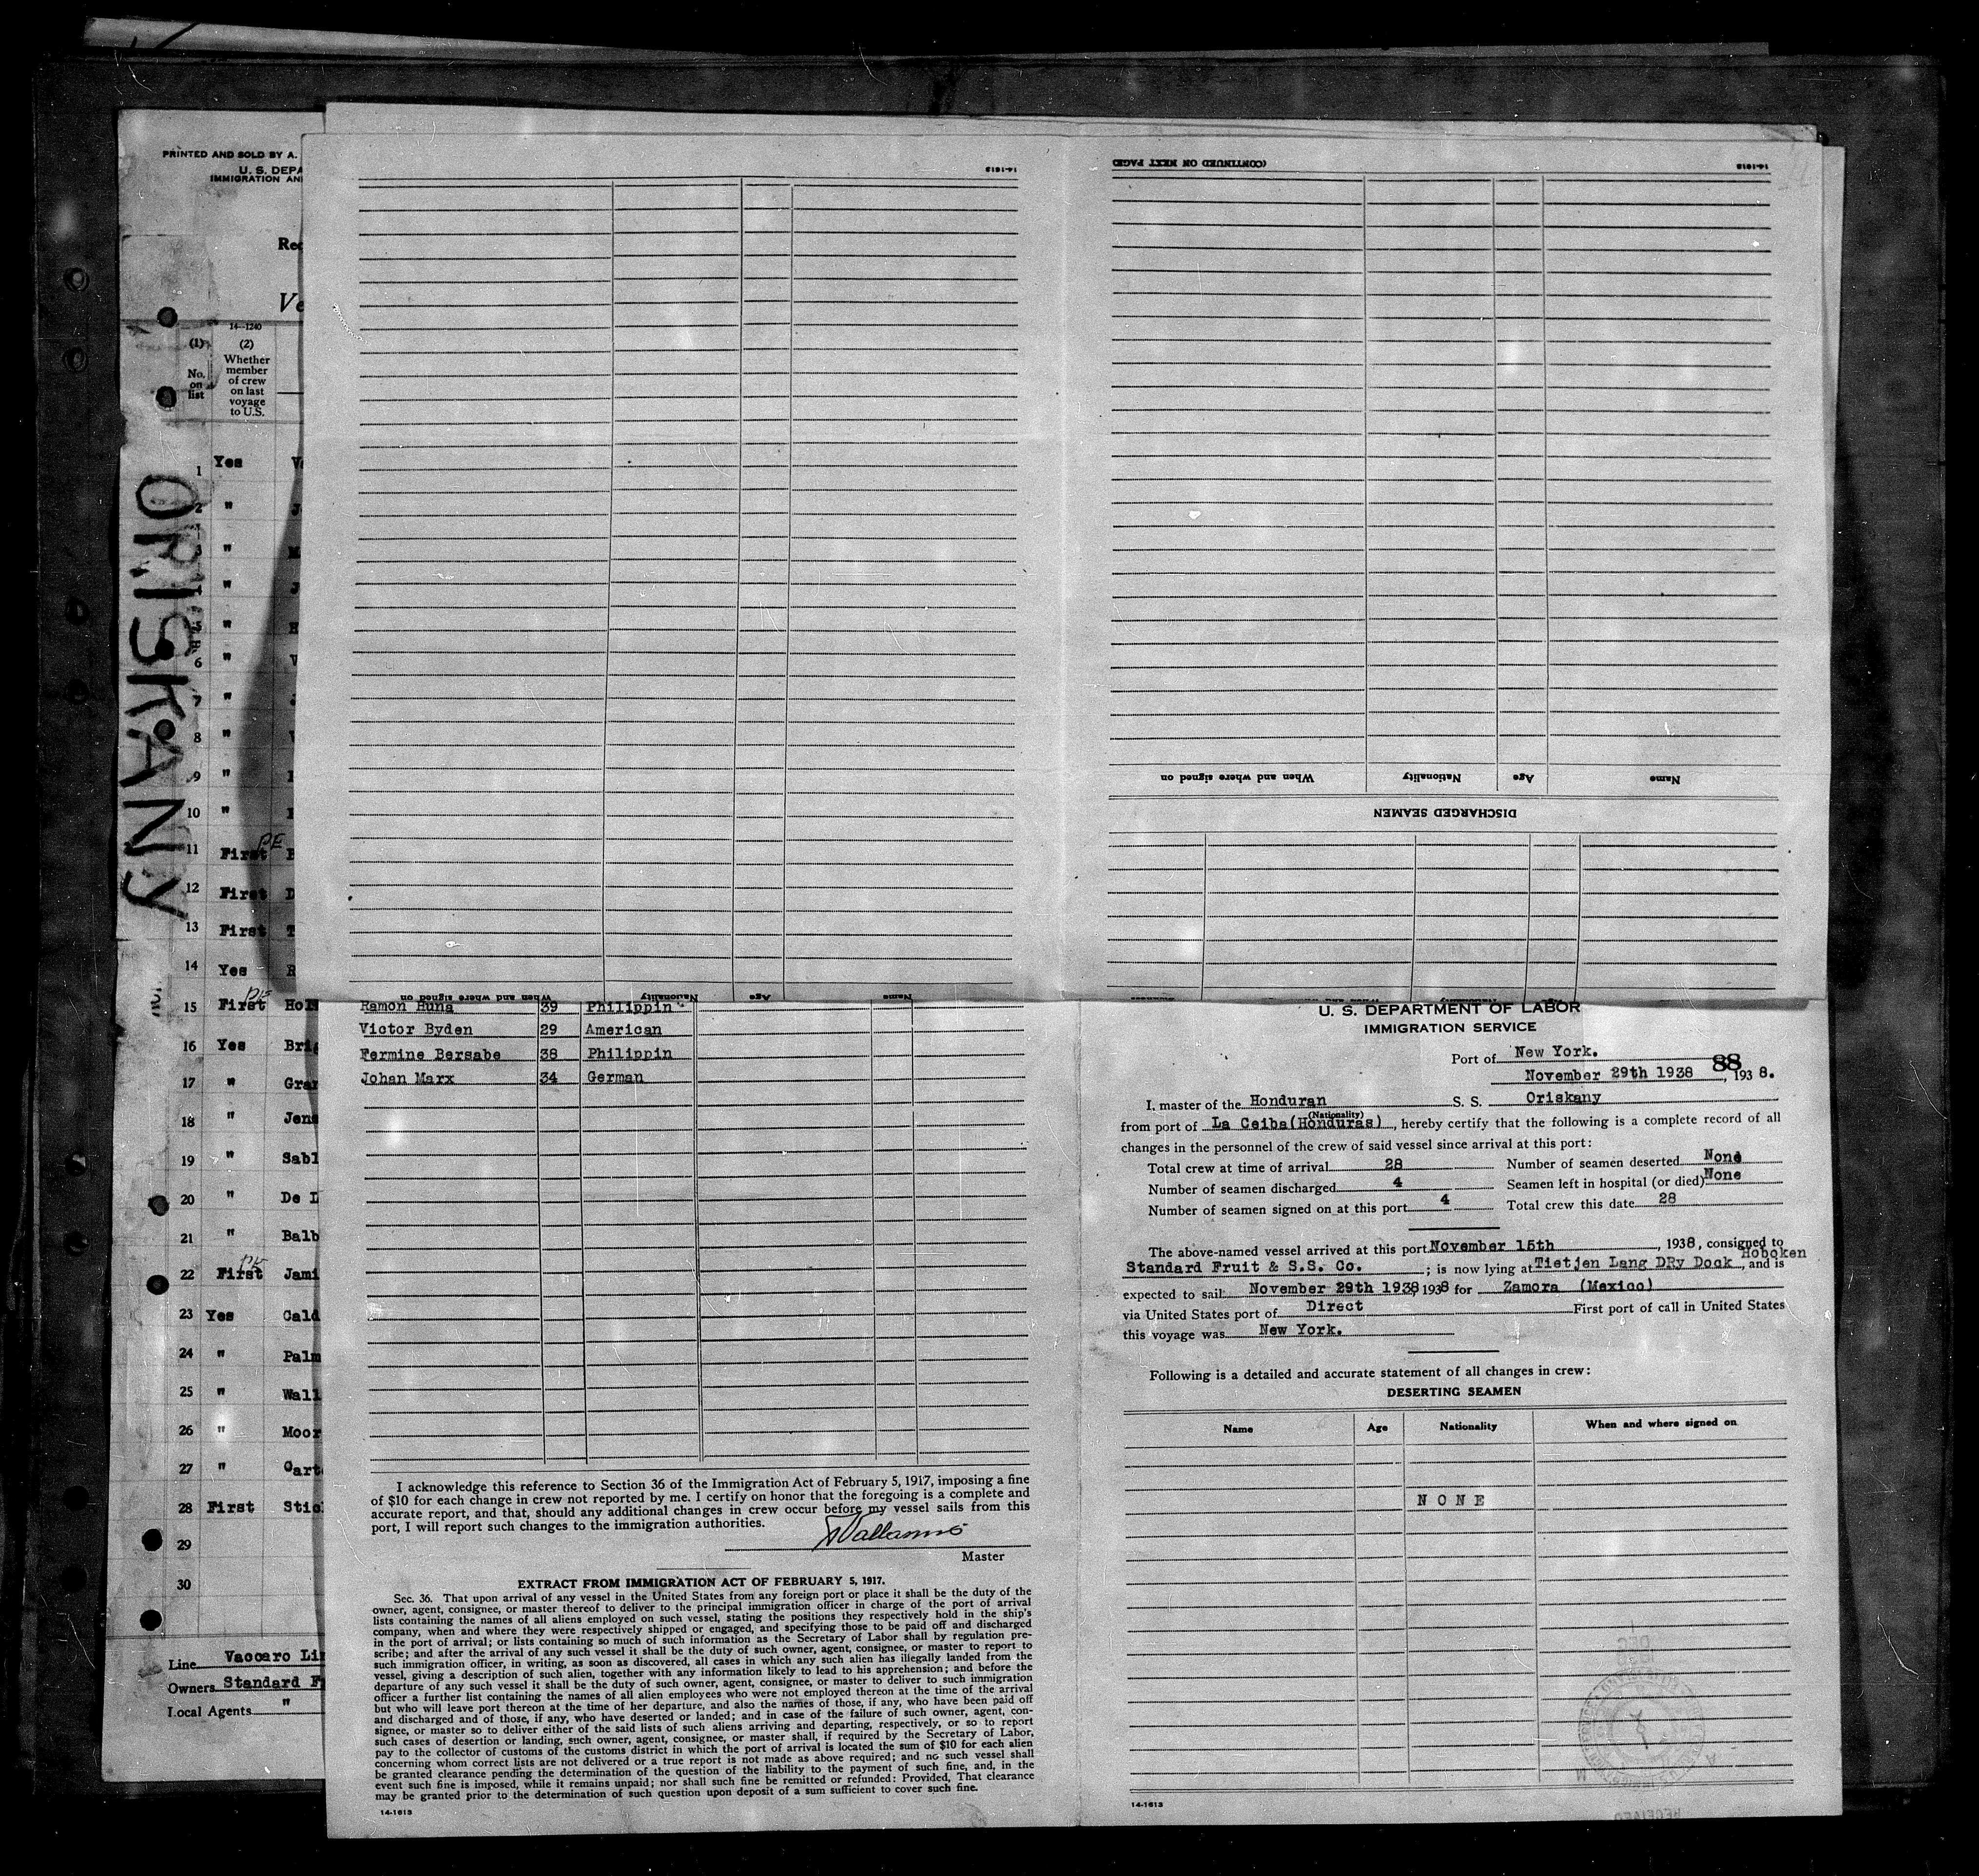 PRINTED AND SOLD BY A.
U. S. DEPA
IMMIGRATION AN
Rec
Ve
14—1240
(1)
No. on list
(2)
Whether member of crew on last voyage to U.S.
ORISKANY
1 Yes
2 "
3 "
4 "
5 "
6 "
7 "
8 "
9 "
10 "
11 First PE
12 First D
13 First T
14 Yes R
15 First Hol
16 Yes Bri
17 " Gra
18 " Jens
19 " Sabl
20 " De L
21 " Balb
22 First Jami
23 Yes Cald
24 " Palm
25 " Wall
26 " Moor
27 " Cart
28 First Stic
29
30
Line Vaccaro Li
Owners Standard F
Local Agents "
14-1613
(CONTINUED ON NEXT PAGE)
14-1613
When and where signed on Nationality Age Name
DISCHARGED SEAMEN
When and where signed on Nationality Age Name
Ramon Huna 39 Philippin
Victor Byden 29 American
Fermine Bersabe 38 Philippin
Johan Marx 34 German
I acknowledge this reference to Section 36 of the Immigration Act of February 5, 1917, imposing a fine
of $10 for each change in crew not reported by me. I certify on honor that the foregoing is a complete and
accurate report, and that, should any additional changes in crew occur before my vessel sails from this
port, I will report such changes to the immigration authorities.
Master
EXTRACT FROM IMMIGRATION ACT OF FEBRUARY 5, 1917.
Sec. 36. That upon arrival of any vessel in the United States from any foreign port or place it shall be the duty of the
owner, agent, consignee, or master thereof to deliver to the principal immigration officer in charge of the port of arrival
lists containing the names of all aliens employed on such vessel, stating the positions they respectively hold in the ship's
company, when and where they were respectively shipped or engaged, and specifying those to be paid off and discharged
in the port of arrival; or lists containing so much of such information as the Secretary of Labor shall by regulation pre-
scribe; and after the arrival of any such vessel it shall be the duty of such owner, agent, consignee, or master to report to
such immigration officer, in writing, as soon as discovered, all cases in which any such alien has illegally landed from the
vessel, giving a description of such alien, together with any information likely to lead to his apprehension; and before the
departure of any such vessel it shall be the duty of such owner, agent, consignee, or master to deliver to such immigration
officer a further list containing the names of all alien employees who were not employed thereon at the time of the arrival
but who will leave port thereon at the time of her departure, and also the names of those, if any, who have been paid off
and discharged and of those, if any, who have deserted or landed; and in case of the failure of such owner, agent, con-
signee, or master so to deliver either of the said lists of such aliens arriving and departing, respectively, or so to report
such cases of desertion or landing, such owner, agent, consignee, or master shall, if required by the Secretary of Labor,
pay to the collector of customs of the customs district in which the port of arrival is located the sum of $10 for each alien
concerning whom correct lists are not delivered or a true report is not made as above required; and no such vessel shall
be granted clearance pending the determination of the question of the liability to the payment of such fine, and, in the
event such fine is imposed, while it remains unpaid; nor shall such fine be remitted or refunded: Provided, That clearance
may be granted prior to the determination of such question upon deposit of a sum sufficient to cover such fine.
14-1613
U. S. DEPARTMENT OF LABOR
IMMIGRATION SERVICE
Port of New York.
88
November 29th 1938, 193 8.
I, master of the Honduran S. S. Oriskany
(Nationality)
from port of La Ceiba(Honduras), hereby certify that the following is a complete record of all
changes in the personnel of the crew of said vessel since arrival at this port:
Total crew at time of arrival 28 Number of seamen deserted None
Number of seamen discharged 4 Seamen left in hospital (or died) None
Number of seamen signed on at this port 4 Total crew this date 28
The above-named vessel arrived at this port November 15th, 1938, consigned to
Standard Fruit & S.S. Co. ; is now lying at Tietjen Lang DRy Dock Hoboken, and is
expected to sail November 29th 1938, 1938 for Zamora (Mexico)
via United States port of Direct First port of call in United States
this voyage was New York.
Following is a detailed and accurate statement of all changes in crew:
DESERTING SEAMEN
Name Age Nationality When and where signed on
NONE
DEC
RECEIVED
14-1613